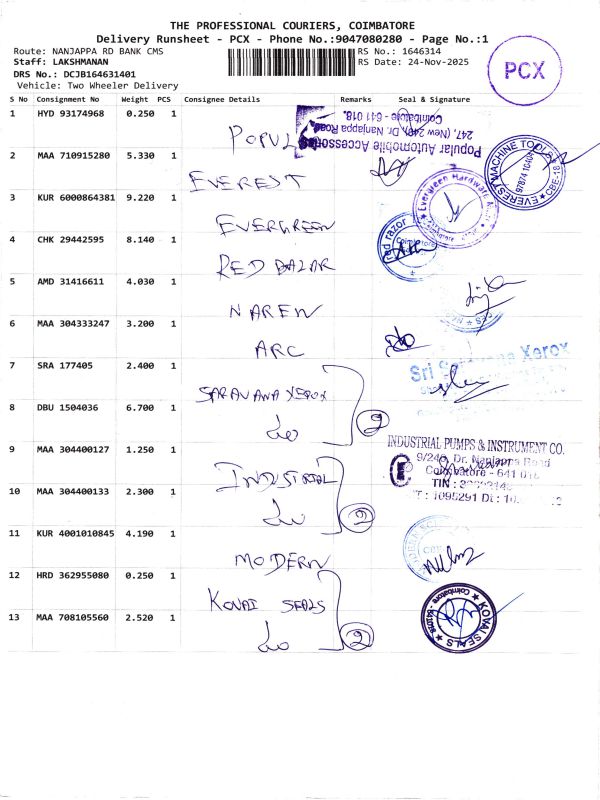 THE PROFESSIONAL COURIERS, COIMBATORE
Delivery Runsheet - PCX - Phone No.:9047080280 - Page No.:1
Route: NANJAPPA RD BANK CMS
RS No.: 1646314
Staff: LAKSHMANAN
RS Date: 24-Nov-2025
DRS No.: DCJB164631401
Vehicle: Two Wheeler Delivery
PCX
S No Consignment No Weight PCS Consignee Details Remarks Seal & Signature
1 HYD 93174968 0.250 1 POPUL
Popular Automobile Accessories
247, (New 249), Dr. Nanjappa Road,
Coimbatore - 641 018.
2 MAA 710915280 5.330 1 EVEREST
EVEREST MACHINE TOOLS
CBE-18
3 KUR 6000864381 9.220 1 EVERGREEN
Evergreen Hardware
4 CHK 29442595 8.140 1 RED BAZAR
red razor
Coimbatore
5 AMD 31416611 4.030 1 NAREN
6 MAA 304333247 3.200 1 ARC
7 SRA 177405 2.400 1 SARAVANA XEROX
Sri Saravana Xerox
8 DBU 1504036 6.700 1 do 2
9 MAA 304400127 1.250 1 INDUSTRIAL
INDUSTRIAL PUMPS & INSTRUMENT CO.
9/240, Dr. Nanjappa Road
Coimbatore - 641 018
TIN :
10 MAA 304400133 2.300 1 do 2
11 KUR 4001010845 4.190 1 MODERN
12 HRD 362955080 0.250 1 KOVAI SEALS
KOVAI SEALS
Coimbatore - 641018
13 MAA 708105560 2.520 1 do 2